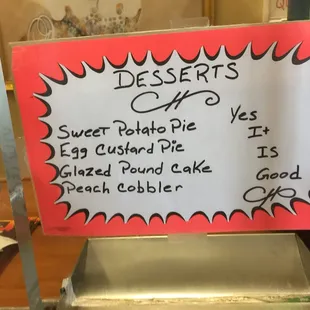 DESSERTS
Sweet Potato Pie Yes
Egg Custard Pie It
Glazed Pound Cake Is
Peach Cobbler Good